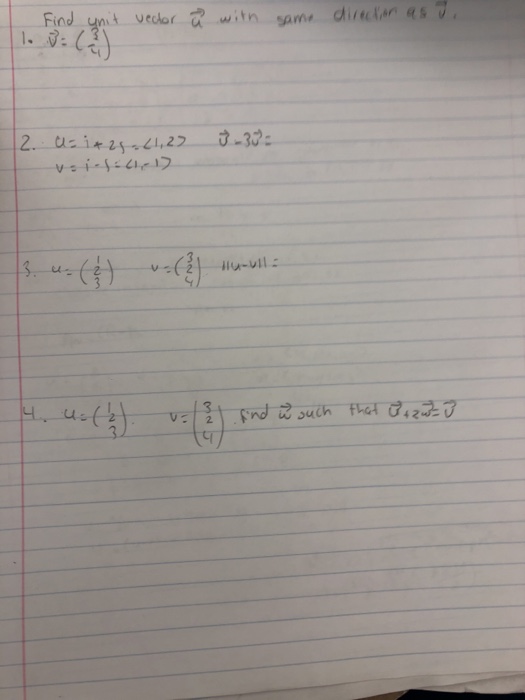 Find unit vector u⃗ with same direction as v⃗.
1. v⃗ = (3 / -4)
2. u = i + 2j = <1,2>   v⃗ - 3v⃗ =
v = i - j = <1,-1>
3. u = (1 / 2 / 3)   v = (3 / 2 / 4)   ||u-v|| =
4. u = (1 / 2 / 3).   v = (3 / 2 / 4) find w⃗ such that u⃗ + 2w⃗ = v⃗